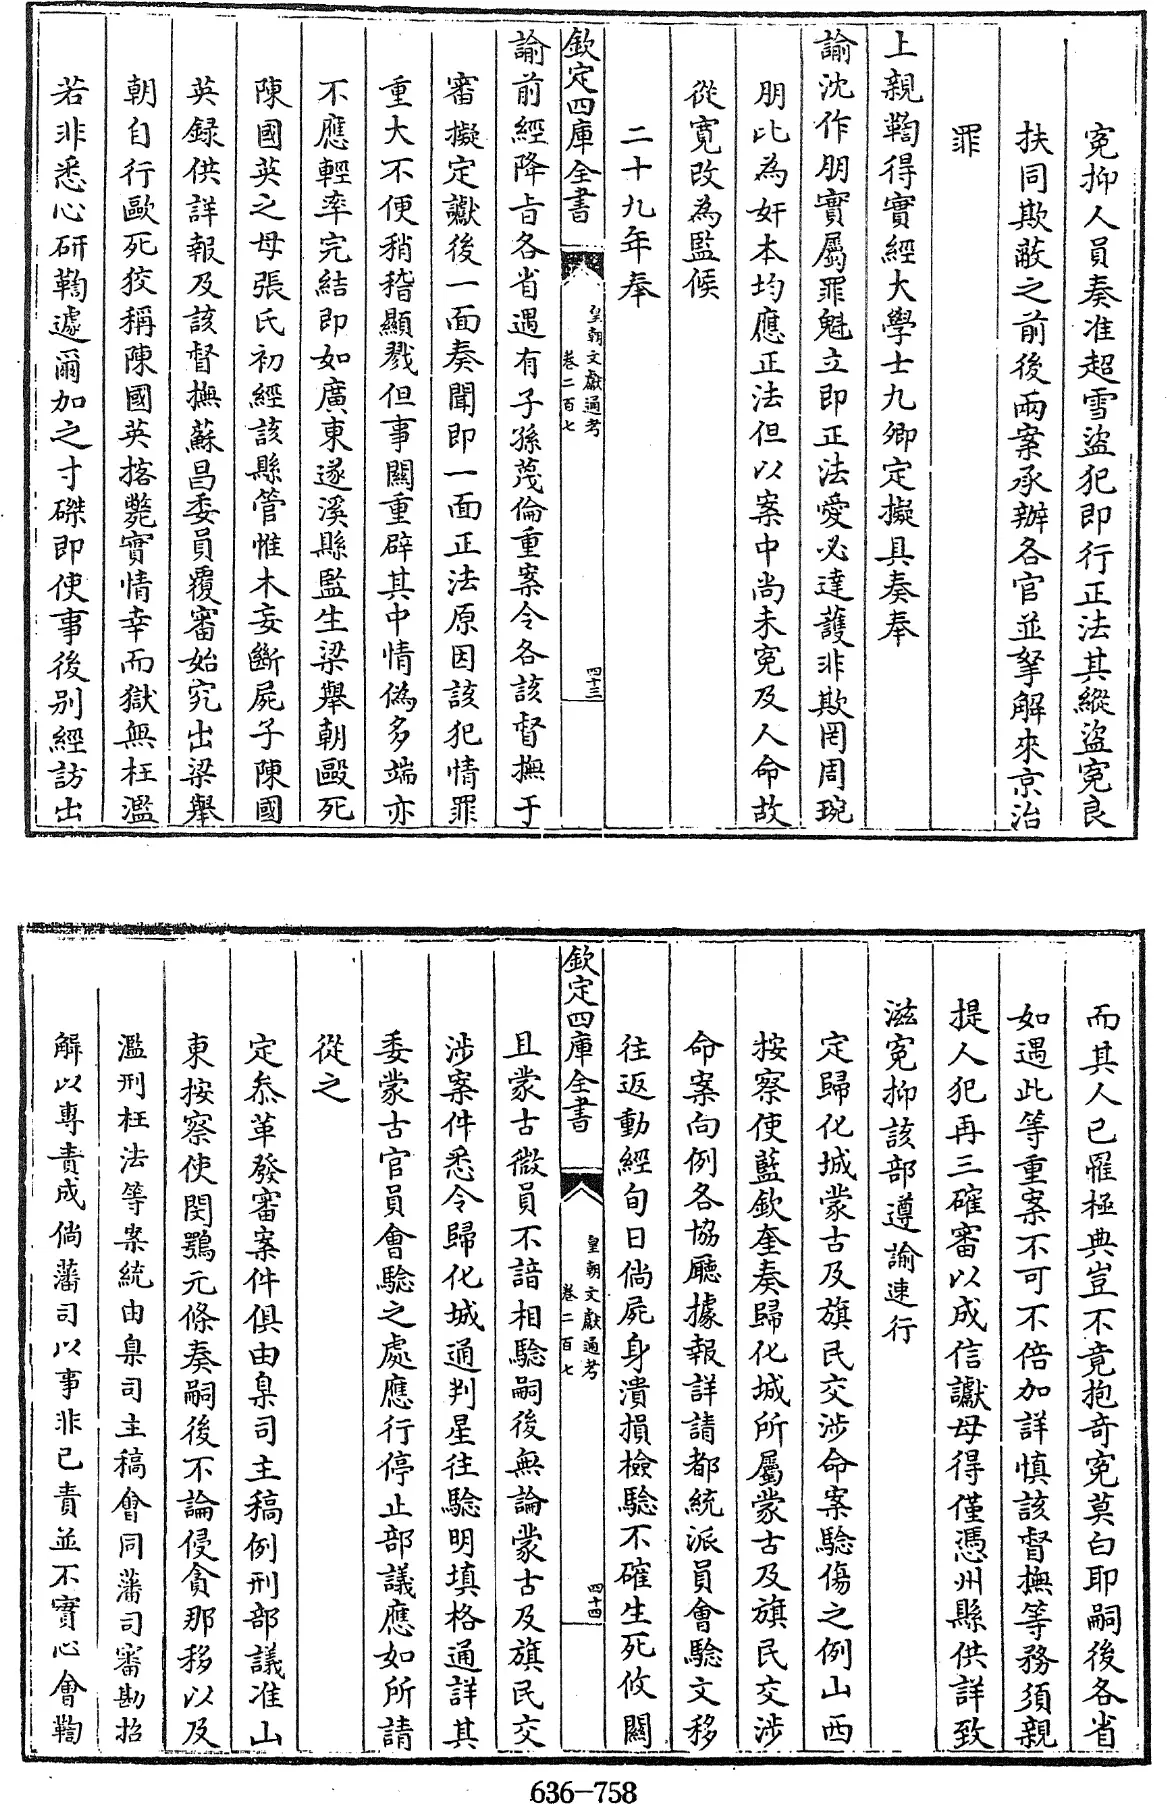 冤抑人員奏准超雪盜犯即行正法其縱盜冤良
扶同欺蔽之前後兩案承辦各官並拏解來京治
罪
上親鞫得實經大學士九卿定擬具奏奉
諭沈作朋實屬罪魁立即正法愛必達護非欺罔周琬
朋比為奸本均應正法但以案中尚未冤及人命故
從寬改為監候
二十九年奉
欽定四庫全書
皇朝文獻通考
卷二百七
四十三
諭前經降旨各省遇有子孫蔑倫重案令各該督撫于
審擬定讞後一面奏聞即一面正法原因該犯情罪
重大不便稍稽顯戮但事關重辟其中情偽多端亦
不應輕率完結即如廣東遂溪縣監生梁舉朝毆死
陳國英之母張氏初經該縣管惟木妄斷屍子陳國
英錄供詳報及該督撫蘇昌委員覆審始究出梁舉
朝自行毆死狡稱陳國英掊斃實情幸而獄無枉濫
若非悉心研鞫遽爾加之寸磔即使事後別經訪出
而其人已罹極典豈不竟抱奇冤莫白耶嗣後各省
如遇此等重案不可不倍加詳慎該督撫等務須親
提人犯再三確審以成信讞毋得僅憑州縣供詳致
滋冤抑該部遵諭速行
定歸化城蒙古及旗民交涉命案驗傷之例山西
按察使藍欽奎奏歸化城所屬蒙古及旗民交涉
命案向例各協廳據報詳請都統派員會驗文移
往返動經旬日倘屍身潰損檢驗不確生死攸關
欽定四庫全書
皇朝文獻通考
卷二百七
四十四
且蒙古微員不諳相驗嗣後無論蒙古及旗民交
涉案件悉令歸化城通判星往驗明填格通詳其
委蒙古官員會驗之處應行停止部議應如所請
從之
定叅革發審案件俱由臬司主稿例刑部議准山
東按察使閔鶚元條奏嗣後不論侵貪那移以及
濫刑枉法等案統由臬司主稿會同藩司審勘招
解以專責成倘藩司以事非已責並不實心會鞫
636-758